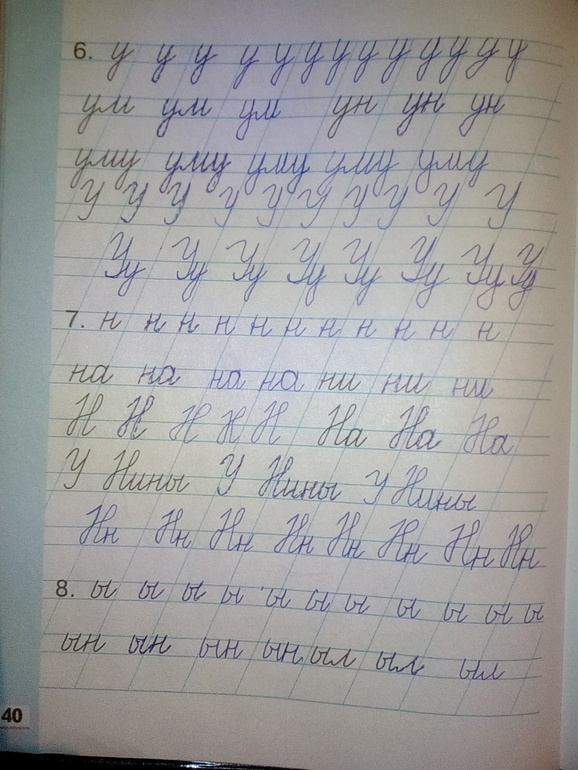 6. у у у у у у у у у у у у у
ум ум ум ун ун ун
уму уму уму уму уму
У У У У У У У У У У
Уу Уу Уу Уу Уу Уу Уу Уу
7. н н н н н н н н н н н
на на на на ни ни ни
Н Н Н Н Н На На На
У Нины У Нины У Нины
Нн Нн Нн Нн Нн Нн Нн Нн
8. ы ы ы ы ы ы ы ы ы ы ы
ын ын ын ын ыл ыл ыл
40